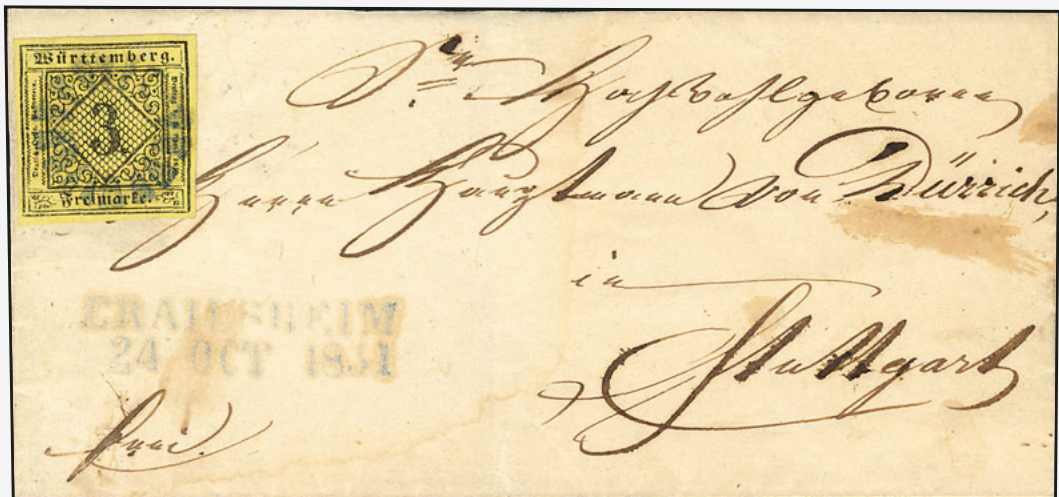 Württemberg.
3
Freimarke.
Sr Hochwohlgeboren
Herrn Hauptmann von Dürrich,
in
Stuttgart
CRAILSHEIM
24 OCT 1851
frei.